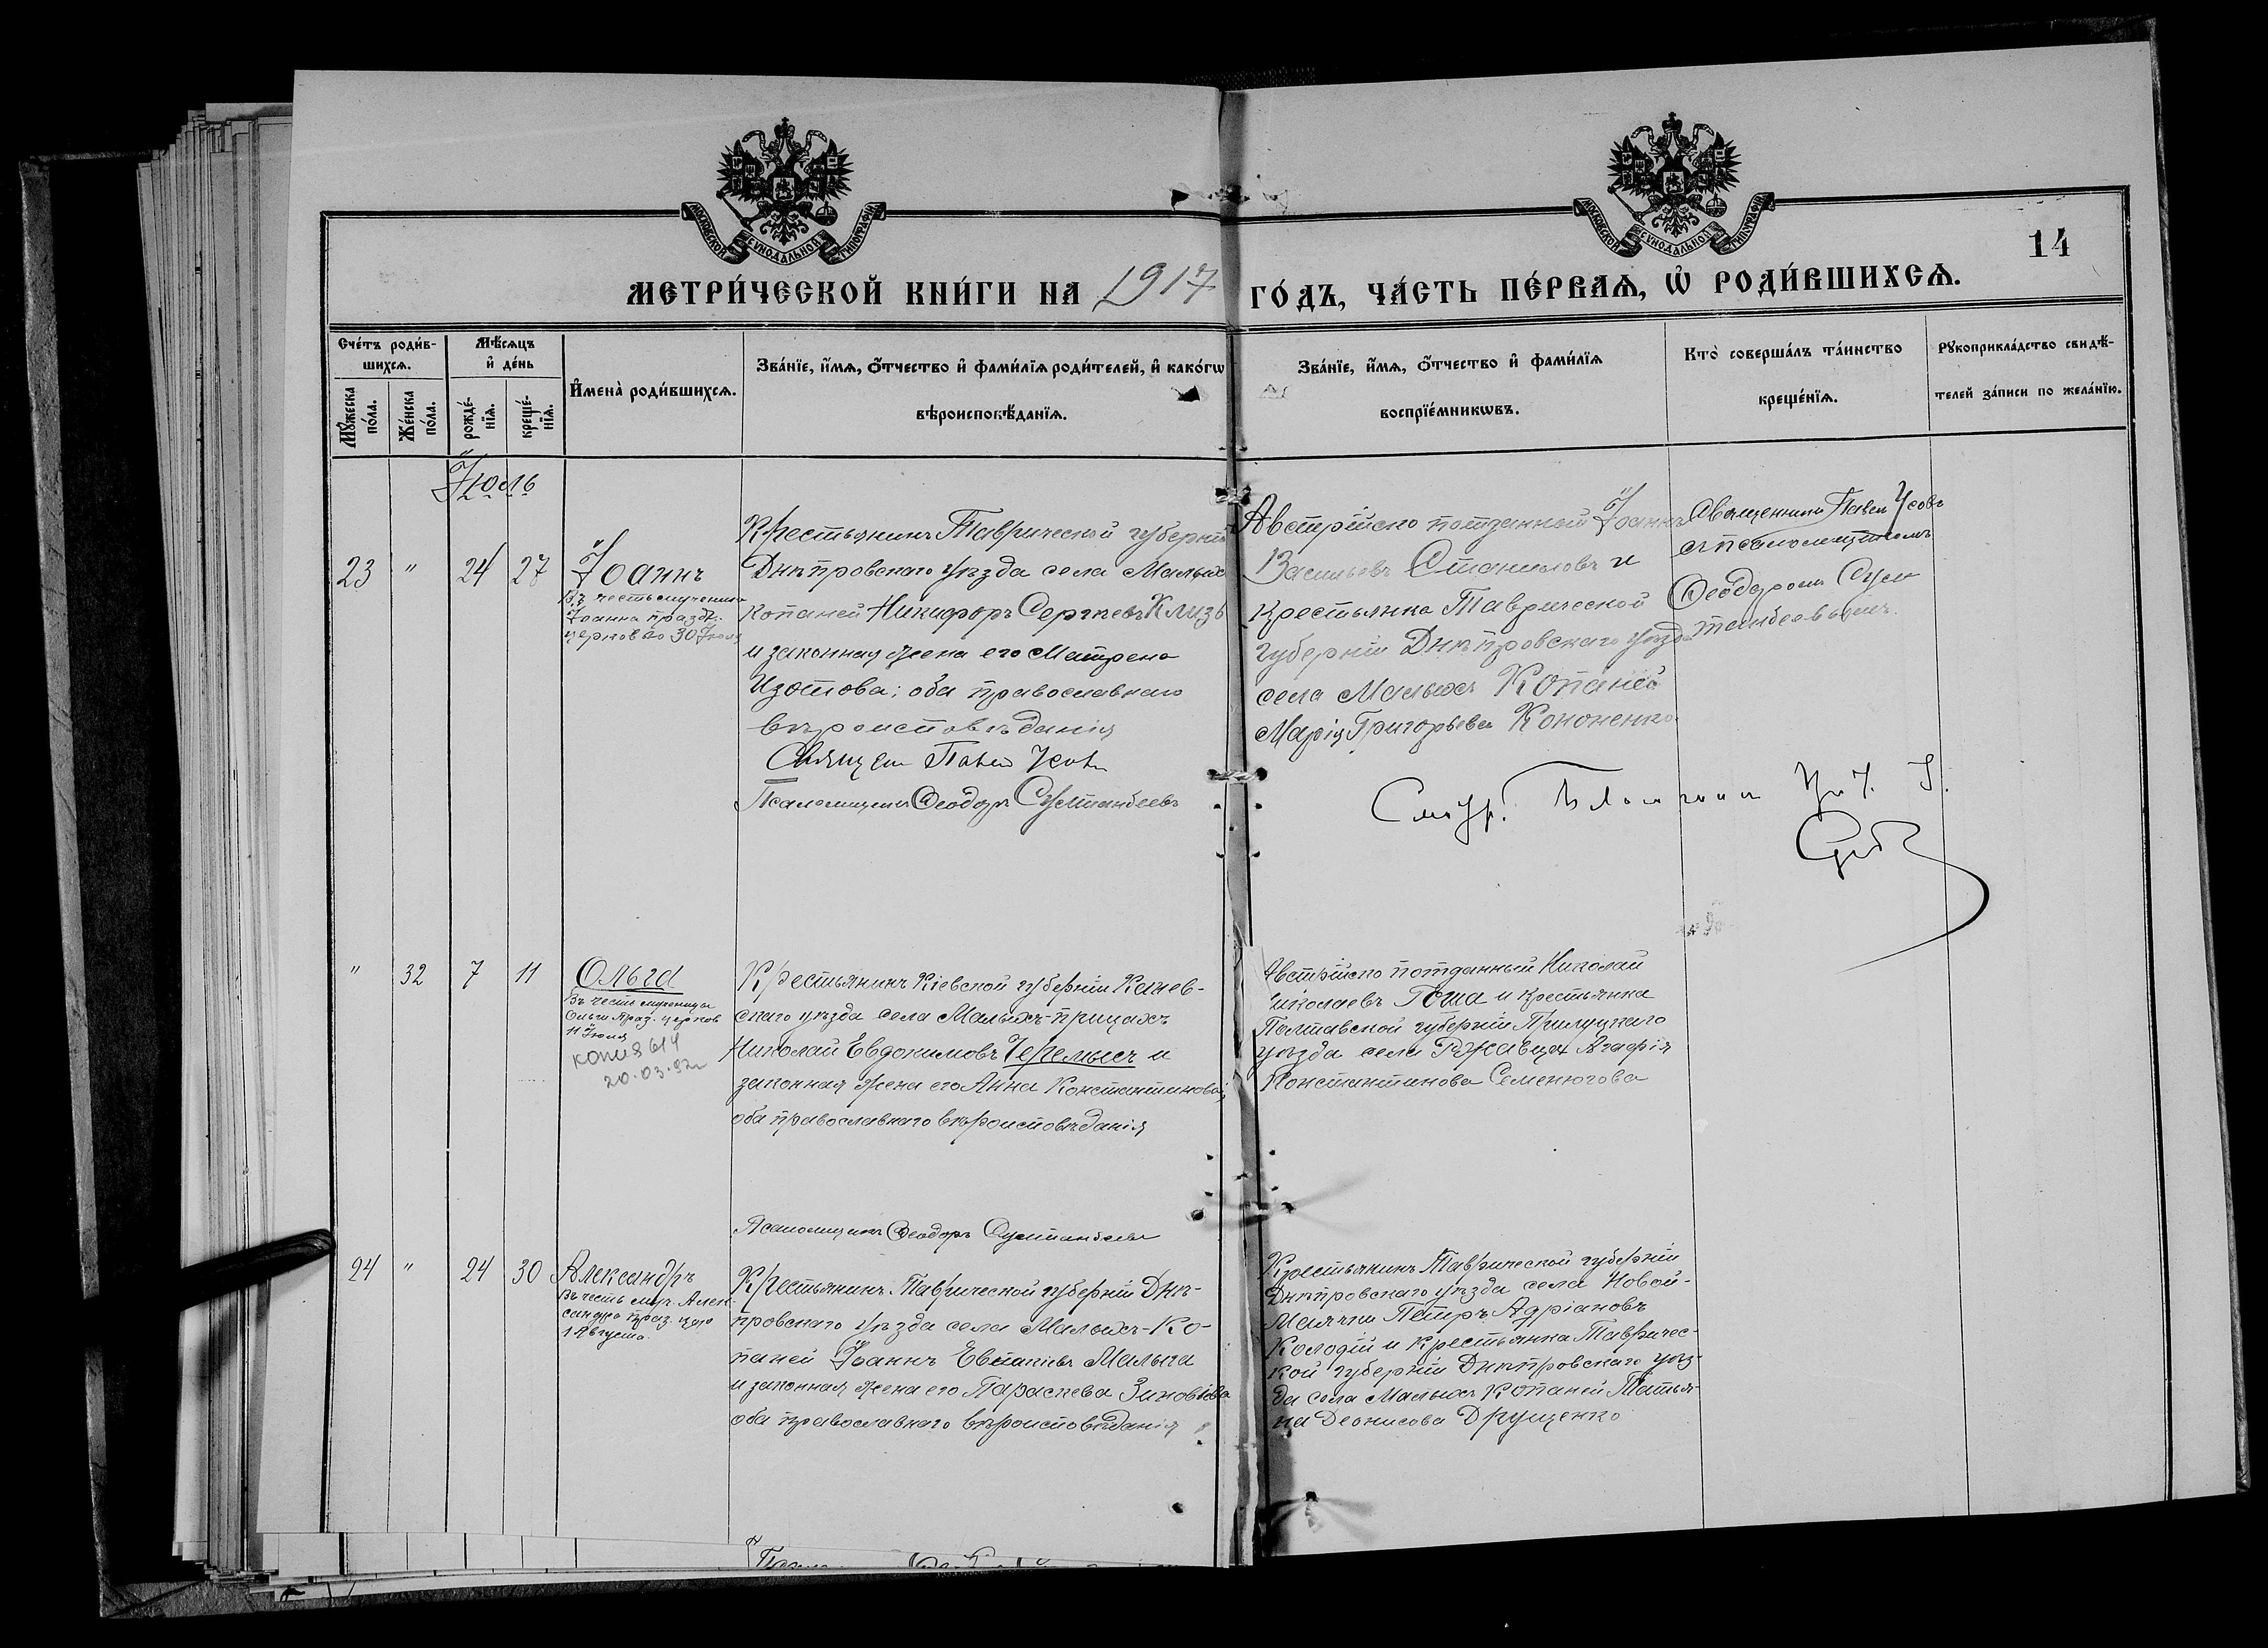 МОСКОВСКОЙ СѴНОДАЛЬНОЙ ТИПОГРАФІИ
МОСКОВСКОЙ СѴНОДАЛЬНОЙ ТИПОГРАФІИ
14
МЕТРИ́ЧЕСКОЙ КНИ́ГИ НА 1917 ГО́ДЪ, ЧА́СТЬ ПЕ́РВАѦ, Ѡ҆ РОДИ́ВШИХСѦ.
Сче́тъ роди́в-
шихсѧ.
Мꙋ́жеска по́ла.
Же́нска по́ла.
Мѣ́сѧцъ
и҆ де́нь
рожде́-
нїѧ.
креще́-
нїѧ.
И҆мена̀ роди́вшихсѧ.
Зва́нїе, и҆́мѧ, ѻ҆́тчество и҆ фами́лїѧ роди́телей, и҆ како́гѡ
вѣроисповѣ́данїѧ.
Зва́нїе, и҆́мѧ, ѻ҆́тчество и҆ фами́лїѧ
воспрїе́мникѡвъ.
Кто̀ соверша́лъ та́инство
креще́нїѧ.
Рꙋкоприкла́дство свидѣ́-
телей за́писи по жела́нїю.
Іюль
23 " 24 27 Іоаннъ
Въ честь мученика
Іоанна празд.
церковью 30 Іюля
Крестьянинъ Таврической губерніи
Днѣпровскаго уѣзда села Малыхъ
Копаней Никифоръ Сергѣевъ Клизь
и законная жена его Матрена
Изотова; оба православнаго
вѣроисповѣданія
Священ Павел Усовъ
Псаломщикъ Ѳеодоръ Султанбеевъ
Австрійско потданный Іоаннъ
Васильевъ и
Крестьянка Таврической
губерніи Днѣпровскаго уѣзда
села Малыхъ Копаней
Марія Григорьева Кононенко
Священникъ Павел Усовъ
съ псаломщикомъ
Ѳеодоромъ Сул
танбеевымъ.
" 32 7 11 Ольга
Въ честь мученицы
Ольги праз. церков
11 Іюля
копия 614
20.03.92
Крестьянинъ Кіевской губерніи Канев-
скаго уѣзда села Малыхъ-прицахъ
Николай Евдокимовъ Черемысъ и
законная жена его Анна Константинова,
оба православнаго вѣроисповѣданія
Псаломщикъ Ѳеодоръ Султанбеевъ
Австрійско потданный Николай
Николаевъ Гоша и крестьянка
Полтавской губерніи Прилуцкаго
уѣзда села Ржавца Агафія
Константинова Семенюгова
24 " 24 30 Александръ
Въ честь муч. Алек-
сандра праз. цер
1 Августа.
Крестьянинъ Таврической губерніи Днѣ-
провскаго уѣзда села Малыхъ-Ко-
паней Іоаннъ Малыга
и законная жена его Параскева Зиновіева
оба православнаго вѣроисповѣданія
Крестьянинъ Таврической губерніи
Днѣпровскаго уѣзда села Новой-
Маячки Петръ Адріановъ
Колодій и крестьянка Тавричес-
кой губерніи Днѣпровскаго уѣз-
да села Малыхъ Копаней Татья-
на Деонисова Друщенко